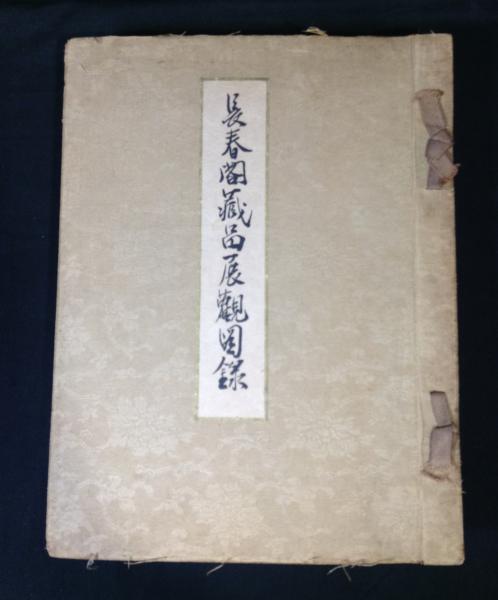 長春閣藏品展觀圖録